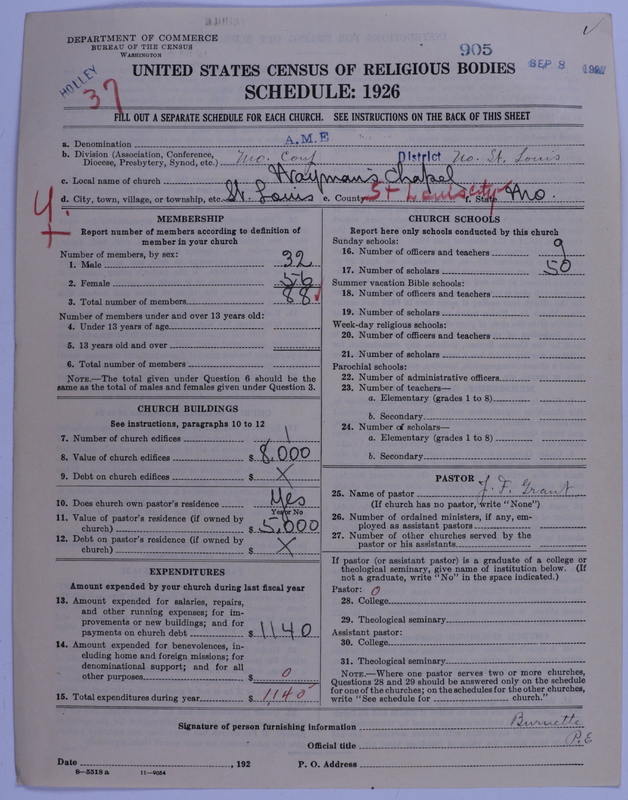 DEPARTMENT OF COMMERCE
BUREAU OF THE CENSUS
WASHINGTON
HOLLEY
37
905
SEP 8 192
UNITED STATES CENSUS OF RELIGIOUS BODIES
SCHEDULE: 1926
FILL OUT A SEPARATE SCHEDULE FOR EACH CHURCH. SEE INSTRUCTIONS ON THE BACK OF THIS SHEET
a. Denomination A.M.E
b. Division (Association, Conference, Diocese, Presbytery, Synod, etc.) Mo. Conf District No. St. Louis
c. Local name of church Wayman's Chapel
d. City, town, village, or township, etc. St. Louis e. County St Louis City f. State Mo.
MEMBERSHIP
Report number of members according to definition of
member in your church
Number of members, by sex:
1. Male 32
2. Female 56
3. Total number of members 88
Number of members under and over 13 years old:
4. Under 13 years of age
5. 13 years old and over
6. Total number of members
NOTE.—The total given under Question 6 should be the
same as the total of males and females given under Question 3.
CHURCH BUILDINGS
See instructions, paragraphs 10 to 12
7. Number of church edifices 1
8. Value of church edifices $ 8.000
9. Debt on church edifices $ X
10. Does church own pastor's residence Yes
Yes or No
11. Value of pastor's residence (if owned by
church) $ 5,000
12. Debt on pastor's residence (if owned by
church) $ X
EXPENDITURES
Amount expended by your church during last fiscal year
13. Amount expended for salaries, repairs,
and other running expenses; for im-
provements or new buildings; and for
payments on church debt $ 1140
14. Amount expended for benevolences, in-
cluding home and foreign missions; for
denominational support; and for all
other purposes $ 0
15. Total expenditures during year $ 1140
CHURCH SCHOOLS
Report here only schools conducted by this church
Sunday schools:
16. Number of officers and teachers 9
17. Number of scholars 50
Summer vacation Bible schools:
18. Number of officers and teachers
19. Number of scholars
Week-day religious schools:
20. Number of officers and teachers
21. Number of scholars
Parochial schools:
22. Number of administrative officers
23. Number of teachers—
a. Elementary (grades 1 to 8)
b. Secondary
24. Number of scholars—
a. Elementary (grades 1 to 8)
b. Secondary
PASTOR
25. Name of pastor J. F. Grant
(If church has no pastor, write "None")
26. Number of ordained ministers, if any, em-
ployed as assistant pastors
27. Number of other churches served by the
pastor or his assistants
If pastor (or assistant pastor) is a graduate of a college or
theological seminary, give name of institution below. (If
not a graduate, write "No" in the space indicated.)
Pastor: 0
28. College
29. Theological seminary
Assistant pastor:
30. College
31. Theological seminary
NOTE.—Where one pastor serves two or more churches,
Questions 28 and 29 should be answered only on the schedule
for one of the churches; on the schedules for the other churches,
write "See schedule for church."
Signature of person furnishing information Burnette
Official title P.E
Date , 192 P. O. Address
8—5518a 11—9054